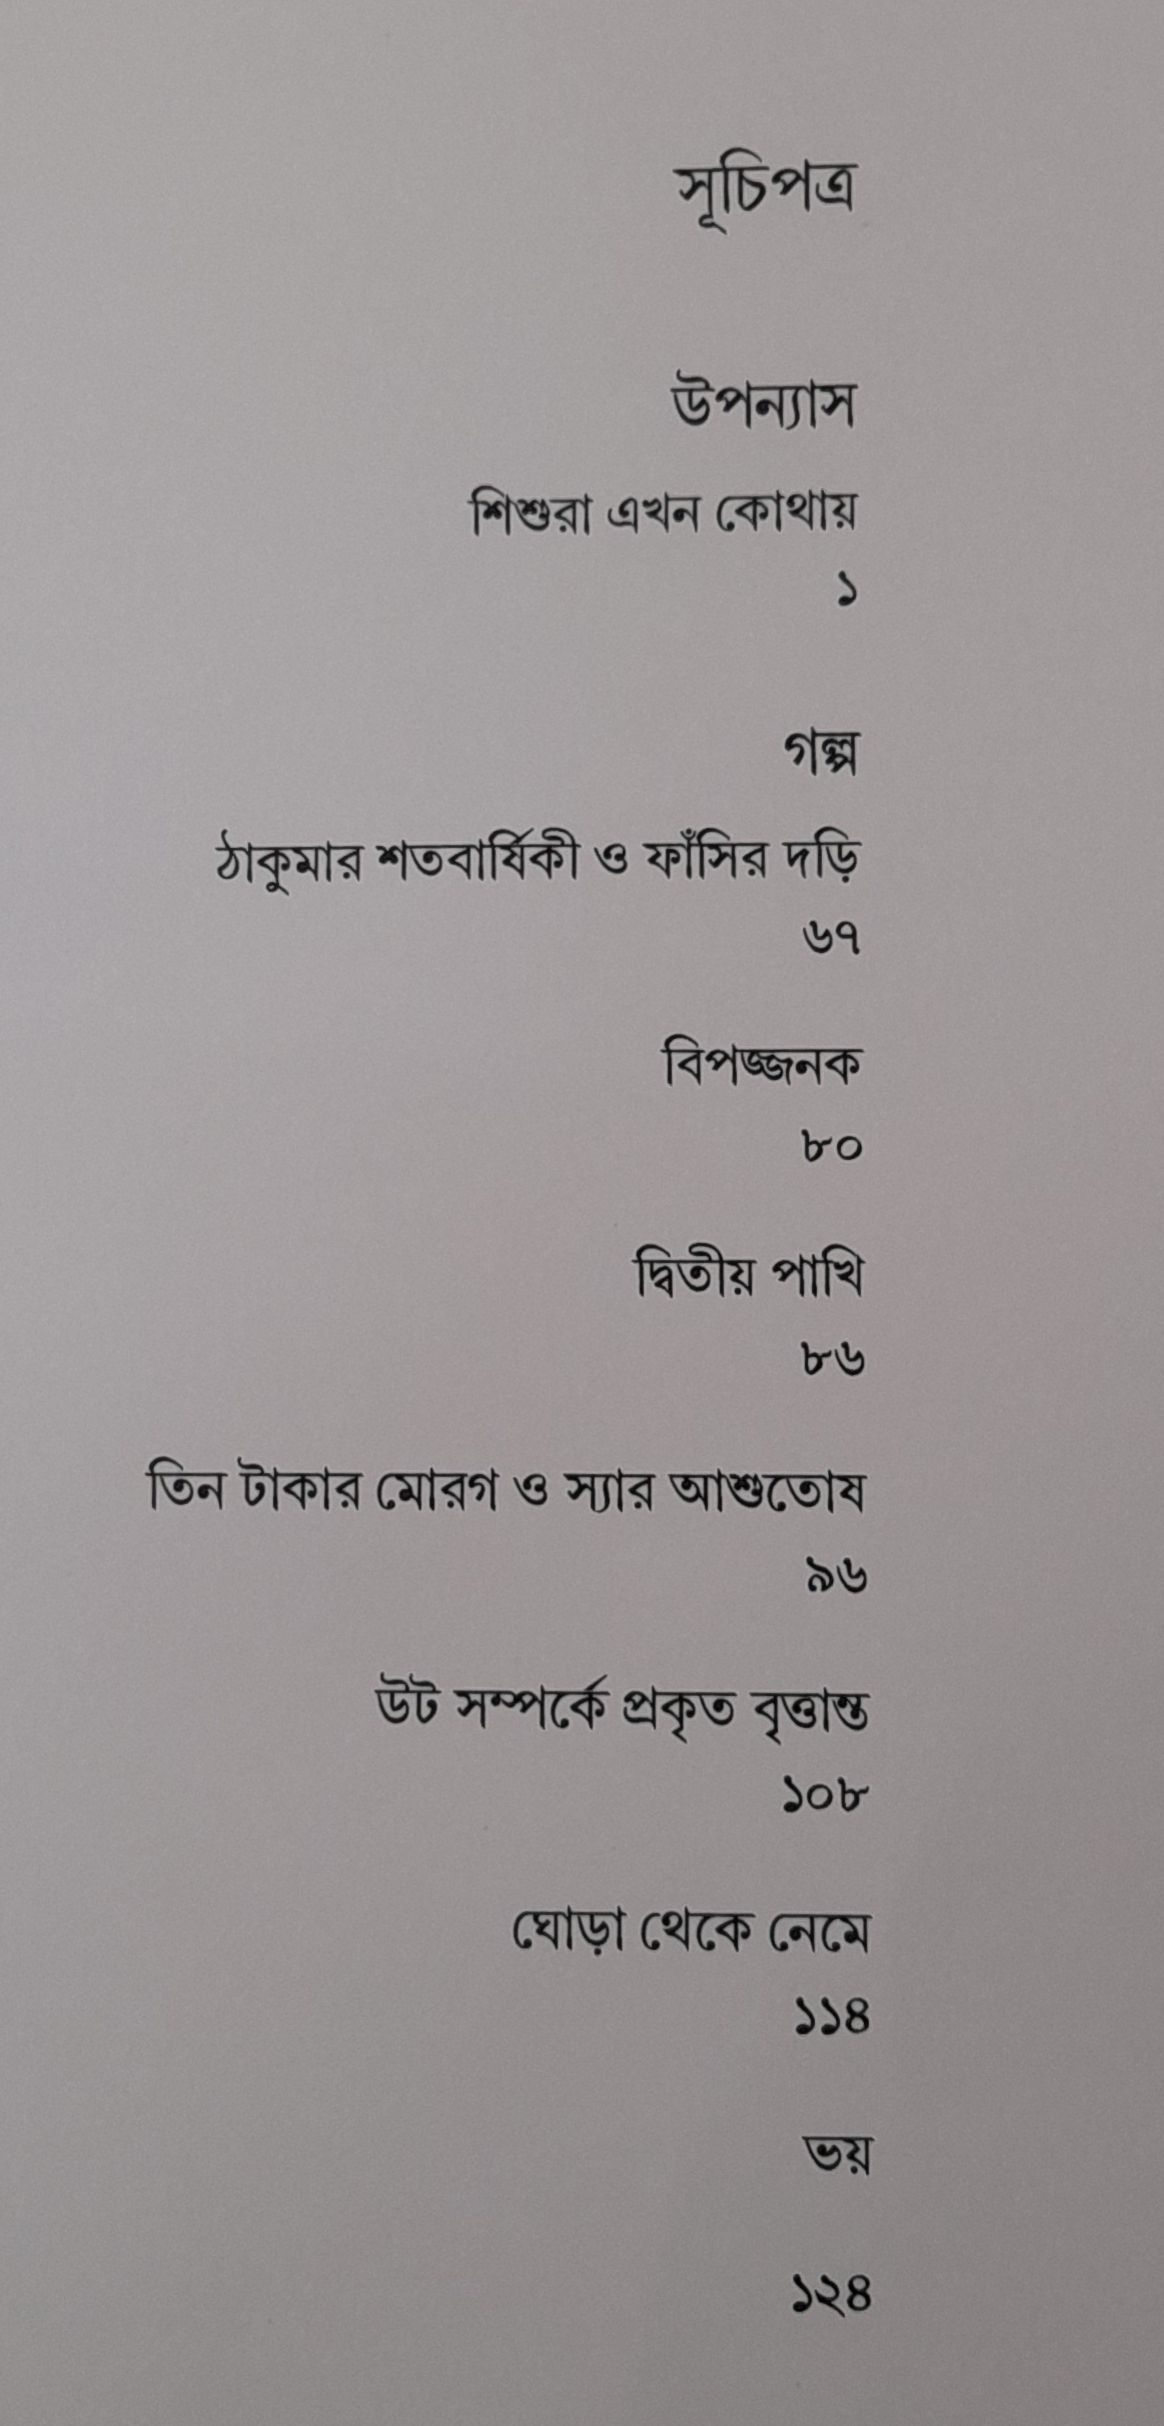 সূচিপত্র
উপন্যাস
শিশুরা এখন কোথায়
১
গল্প
ঠাকুমার শতবার্ষিকী ও ফাঁসির দড়ি
৬৭
বিপজ্জনক
৮০
দ্বিতীয় পাখি
৮৬
তিন টাকার মোরগ ও স্যার আশুতোষ
৯৬
উট সম্পর্কে প্রকৃত বৃত্তান্ত
১০৮
ঘোড়া থেকে নেমে
১১৪
ভয়
১২৪